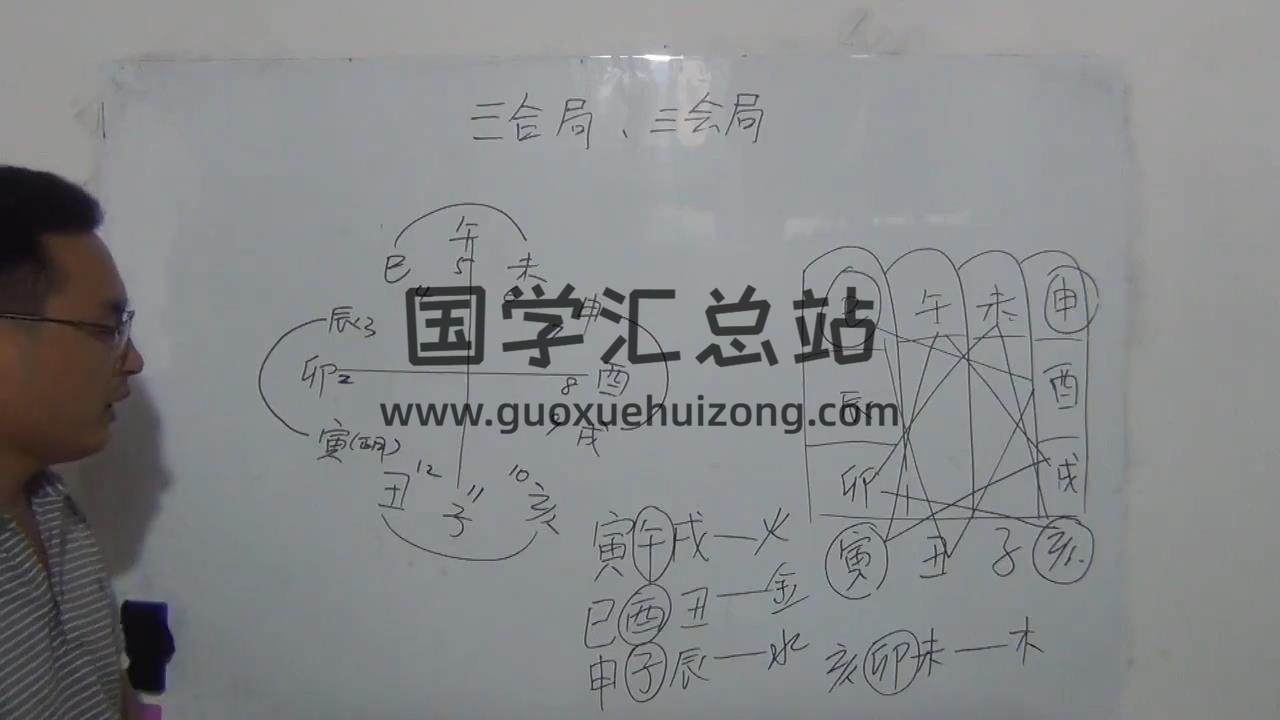 三合局、三会局
午
巳 5 未
4 6
辰3 申
7
卯2 8 酉
寅(正月) 9 戌
丑12 子11 10亥
午 未 申
辰 酉
卯 戌
寅 丑 子 亥
寅午戌—火
巳酉丑—金
申子辰—水 亥卯未—木
国学汇总站
www.guoxuehuizong.com